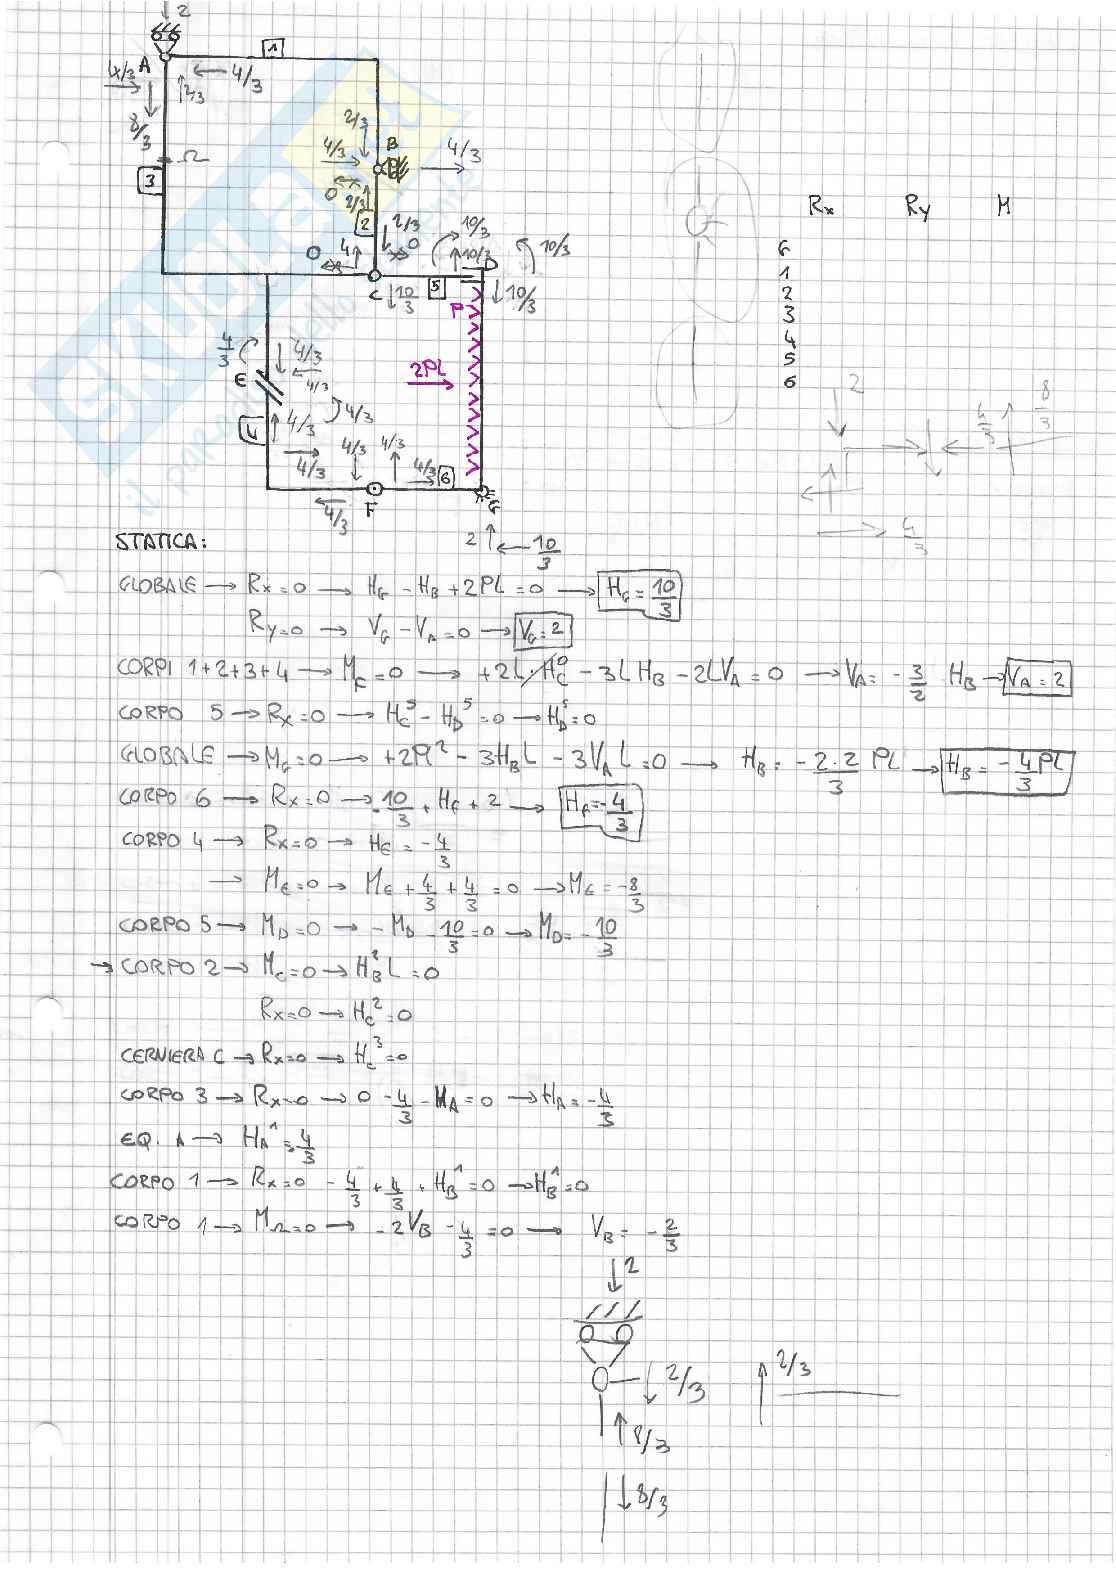 2
A
1
4/3
4/3
2/3
8/3
Ω
3
2/3
B
4/3
4/3
0
2/3
2
2/3
0
4
0
10/3
10/3
10/3
D
C
10/3
5
10/3
P
2PL
4/3
4/3
4/3
E
4/3
4/3
4
4/3
4/3
4/3
4/3
6
4/3
F
G
2
10/3
Rx Ry M
G
1
2
3
4
5
6
2
4/3
8/3
4/3
STATICA:
GLOBALE → Rx=0 → HG - HB + 2PL = 0 → HG = 10/3
Ry=0 → VG - VA = 0 → VG = 2
CORPI 1+2+3+4 → MF=0 → +2L·HC⁰ - 3LHB - 2LVA = 0 → VA = -3/2 HB → VA = 2
CORPO 5 → Rx=0 → HC⁵ - HD⁵ = 0 → HD⁵ = 0
GLOBALE → MG=0 → +2Pl² - 3HBL - 3VAL = 0 → HB = -2·2/3 PL → HB = -4/3 PL
CORPO 6 → Rx=0 → -10/3 + HF + 2 → HF = -4/3
CORPO 4 → Rx=0 → HE = -4/3
→ ME=0 → ME + 4/3 + 4/3 = 0 → ME = -8/3
CORPO 5 → MD=0 → -MD - 10/3 = 0 → MD = -10/3
→ CORPO 2 → MC=0 → HB²L = 0
Rx=0 → HC² = 0
CERNIERA C → Rx=0 → HC³ = 0
CORPO 3 → Rx=0 → 0 - 4/3 - HA = 0 → HA = -4/3
EQ. A → HA¹ = 4/3
CORPO 1 → Rx=0 - 4/3 + 4/3 + HB¹ = 0 → HB¹ = 0
CORPO 1 → MΩ=0 → -2VB - 4/3 = 0 → VB = -2/3
2
2/3
8/3
8/3
2/3